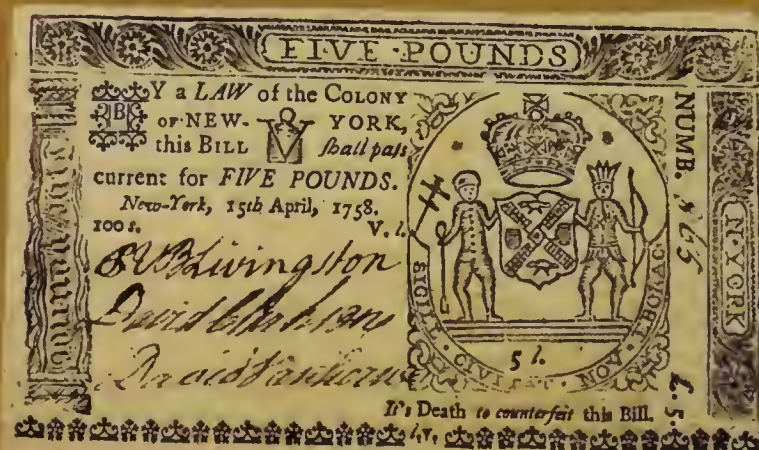 FIVE·POUNDS
BY a LAW of the COLONY
OF·NEW- YORK,
this BILL shall pass
current for FIVE POUNDS.
New-York, 15th April, 1758.
100 s. V. l.
Livingston
David Clarkson
David Vanhorne
SIGILL. CIVITAT. NOV. EBORAC.
5 l.
NUMB.
N·YORK
£. 5.
It's Death to counterfeit this Bill.